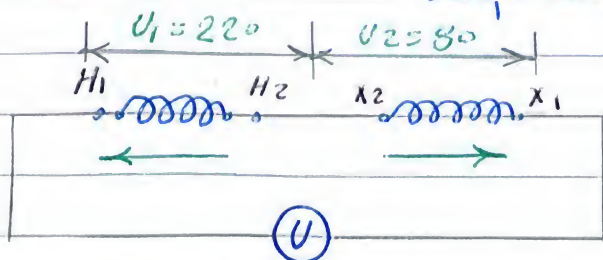 U1=220 U2=80
H1 H2 X2 X1
U